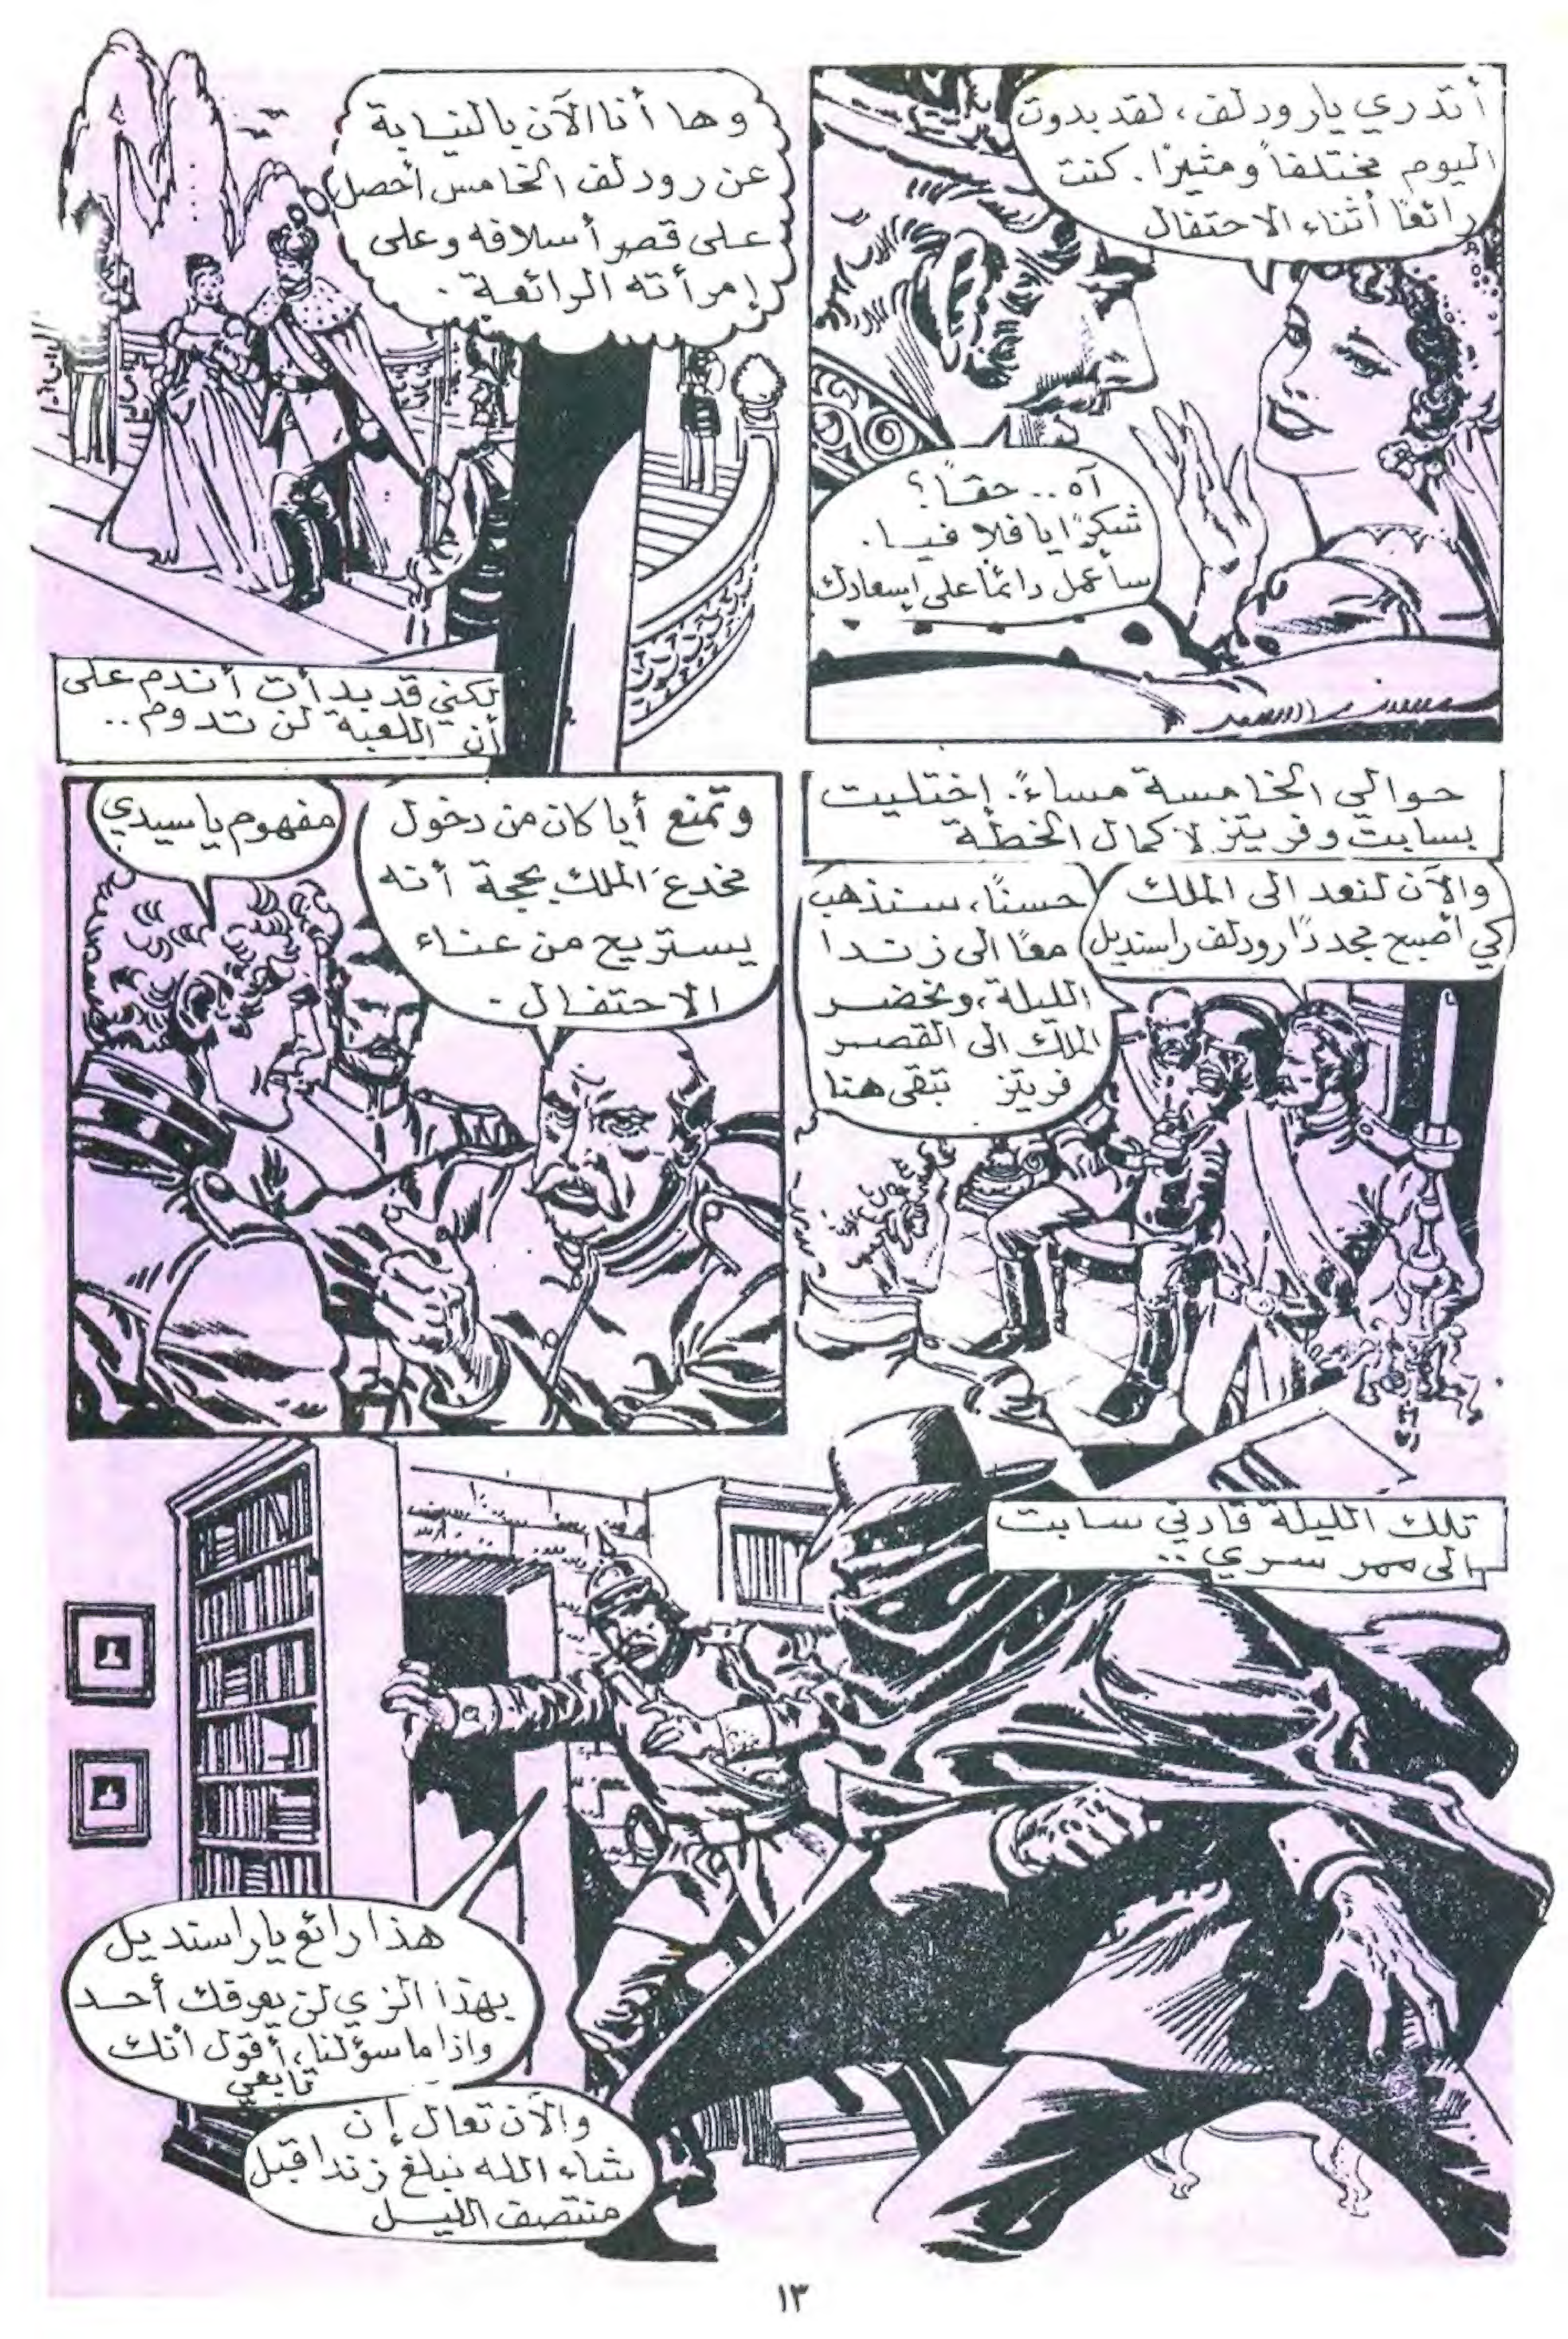 أتدري يا رودلف، لقد بدوت
اليوم مختلفاً ومثيرًا. كنت
رائعًا أثناء الاحتفال
آه.. حقاً؟
شكرًا يا فلافيا.
سأعمل دائمًا على إسعادك
وها أنا الآن بالنيابة
عن رودلف الخامس أحصل
على قصر أسلافه وعلى
إمرأته الرائعة.
لكني قد بدأت أندم على
أن اللعبة لن تدوم..
حوالي الخامسة مساءً. إختليت
بسابت وفريتز لاكمال الخطة
والآن لنعد الى الملك
كي أصبح مجددًا رودلف راسنديل
حسنًا، سنذهب
معًا الى زندا
الليلة، ونحضر
الملك الى القصر
فريتز تبقى هنا
وتمنع أيا كان من دخول
مخدع الملك بحجة أنه
يستريح من عناء
الاحتفال -
مفهوم يا سيدي
تلك الليلة قادني سابت
الى ممر سري..
هذا رائع يا راسنديل
بهذا الزي لن يعرفك أحد
واذا ما سؤلنا، أقول أنك
تابعي
والآن تعال إن
شاء الله نبلغ زندا قبل
منتصف الليل
١٣